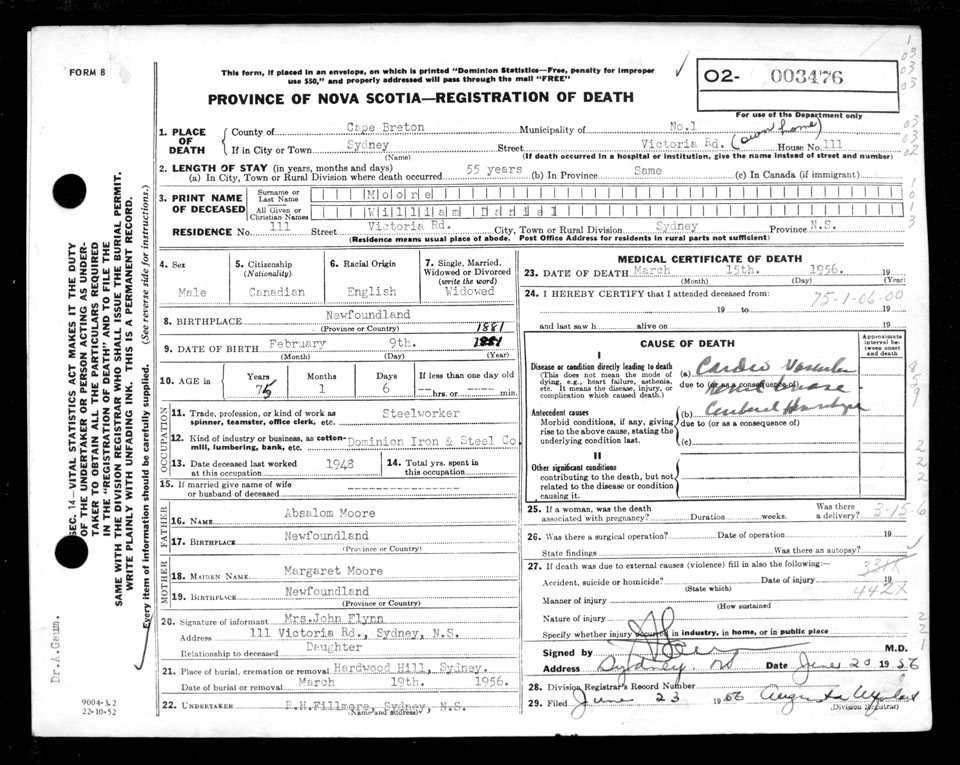 FORM 8
This form, if placed in an envelope, on which is printed "Dominion Statistics—Free, penalty for improper
use $50," and properly addressed will pass through the mail "FREE"
O2- 003476
PROVINCE OF NOVA SCOTIA—REGISTRATION OF DEATH
For use of the Department only
1. PLACE OF DEATH
County of Cape Breton Municipality of No.1 (own home)
If in City or Town Sydney Street Victoria Rd. House No. 111
(Name) (If death occurred in a hospital or institution, give the name instead of street and number)
2. LENGTH OF STAY (in years, months and days)
(a) In City, Town or Rural Division where death occurred 55 years (b) In Province Same (c) In Canada (if immigrant)
3. PRINT NAME OF DECEASED
Surname or Last Name Moore
All Given or Christian Names William Daniel
RESIDENCE No. 111 Street Victoria Rd. City, Town or Rural Division Sydney Province N.S.
(Residence means usual place of abode. Post Office Address for residents in rural parts not sufficient)
4. Sex
Male
5. Citizenship
(Nationality)
Canadian
6. Racial Origin
English
7. Single, Married, Widowed or Divorced
(write the word)
Widowed
8. BIRTHPLACE Newfoundland
(Province or Country)
1881
9. DATE OF BIRTH February 9th.
(Month) (Day) (Year)
10. AGE in
Years Months Days If less than one day old
75 1 6 hrs. or min.
OCCUPATION
11. Trade, profession, or kind of work as
spinner, teamster, office clerk, etc. Steelworker
12. Kind of industry or business, as cotton-
mill, lumbering, bank, etc. Dominion Iron & Steel Co
13. Date deceased last worked
at this occupation 1948
14. Total yrs. spent in
this occupation
15. If married give name of wife
or husband of deceased
FATHER
16. NAME Absalom Moore
17. BIRTHPLACE Newfoundland
(Province or Country)
MOTHER
18. MAIDEN NAME Margaret Moore
19. BIRTHPLACE Newfoundland
(Province or Country)
20. Signature of informant Mrs.John Flynn
Address 111 Victoria Rd., Sydney, N.S.
Relationship to deceased Daughter
21. Place of burial, cremation or removal Hardwood Hill, Sydney.
Date of burial or removal March 19th. 1956.
22. UNDERTAKER R.H.Fillmore, Sydney, N.S.
(Name and address)
MEDICAL CERTIFICATE OF DEATH
23. DATE OF DEATH March 15th. 1956. 19
(Month) (Day) (Year)
24. I HEREBY CERTIFY that I attended deceased from:
75-1-06-00
19 to 19
and last saw h alive on 19
CAUSE OF DEATH
Approximate interval between onset and death
I
Disease or condition directly leading to death
(This does not mean the mode of
dying, e.g., heart failure, asthenia,
etc. It means the disease, injury, or
complication which caused death.)
(a) Cardio Vascular
due to (or as a consequence of)
Renal Disease
Antecedent causes
Morbid conditions, if any, giving
rise to the above cause, stating the
underlying condition last.
(b) Cerebral Hemorrhage
due to (or as a consequence of)
(c)
II
Other significant conditions
contributing to the death, but not
related to the disease or condition
causing it.
25. If a woman, was the death
associated with pregnancy? Duration weeks. Was there a delivery?
3-15-6
26. Was there a surgical operation? Date of operation 19
State findings Was there an autopsy?
27. If death was due to external causes (violence) fill in also the following:—
331X
Accident, suicide or homicide? Date of injury 19
(State which)
442X
Manner of injury
(How sustained
Nature of injury
Specify whether injury occurred in industry, in home, or in public place
Signed by M.D.
Address Sydney NS Date June 20 1956
28. Division Registrar's Record Number
29. Filed June 23 1956
(Division Registrar)
SEC. 14—VITAL STATISTICS ACT MAKES IT THE DUTY
OF THE UNDERTAKER OR PERSON ACTING AS UNDER-
TAKER TO OBTAIN ALL THE PARTICULARS REQUIRED
IN THE "REGISTRATION OF DEATH" AND TO FILE THE
SAME WITH THE DIVISION REGISTRAR WHO SHALL ISSUE THE BURIAL PERMIT.
WRITE PLAINLY WITH UNFADING INK. THIS IS A PERMANENT RECORD.
Every item of information should be carefully supplied. (See reverse side for instructions.)
Dr.A.Gaum.
9004-3.2
22-10-52